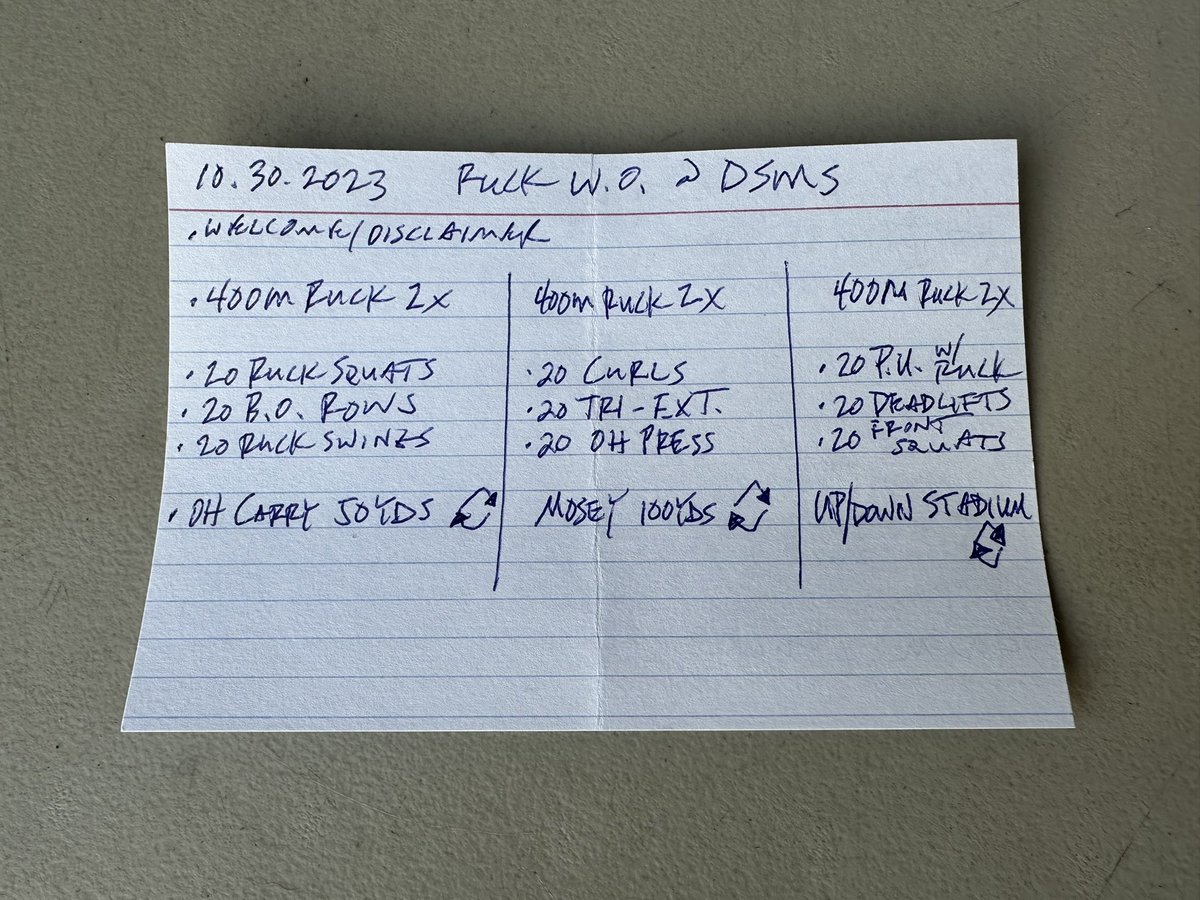 10.30.2023 RUCK W.O. @ DSMS
. WELCOME/DISCLAIMER
. 400M RUCK 2X
. 20 RUCK SQUATS
. 20 B.O. ROWS
. 20 RUCK SWINGS
. OH CARRY 50YDS
400M RUCK 2X
. 20 CURLS
. 20 TRI-EXT.
. 20 OH PRESS
MOSEY 100YDS
400M RUCK 2X
. 20 P.U. W/ RUCK
. 20 DEADLIFTS
. 20 FRONT SQUATS
UP/DOWN STADIUM